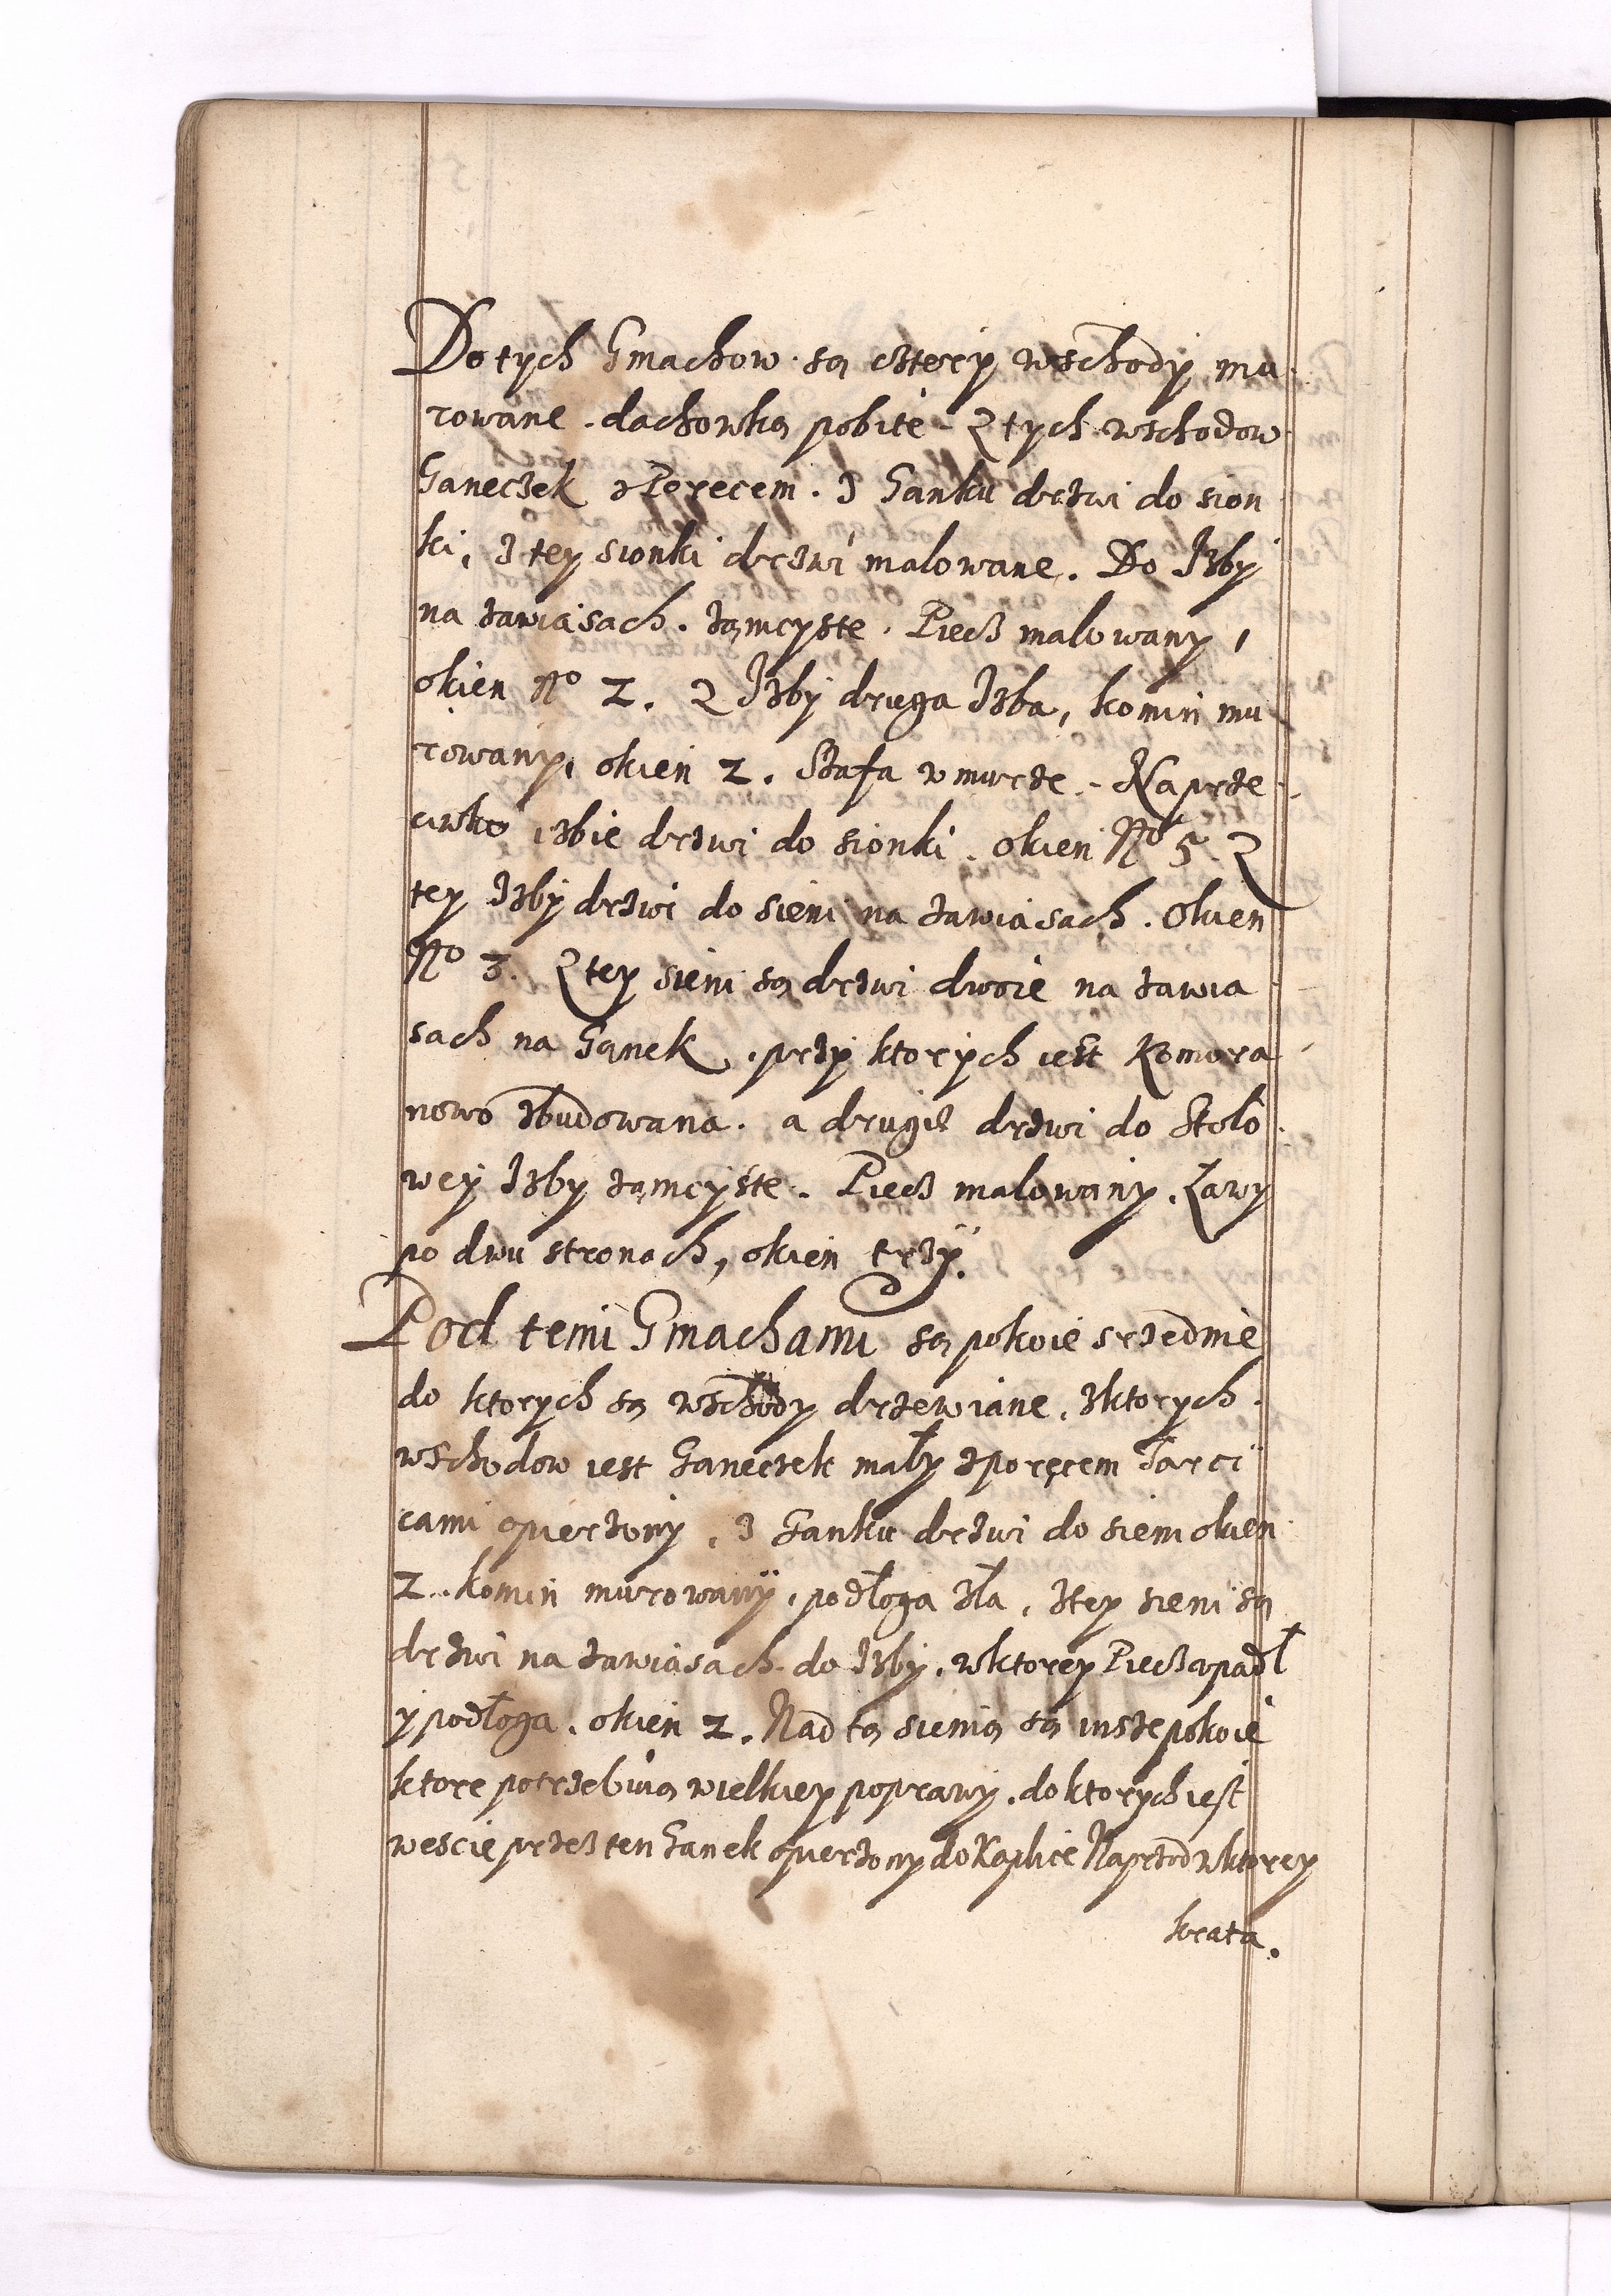 Do tych Gmachow są cztery wschody mu
rowane. dachowką pobite. Z tych wschodow
Ganeczek z Poręcem. z Ganku drzwi do sion
ki, z tey sionki drzwi malowane. Do Izby
na zawiasach. zamczyste. Piecz malowany,
okien No 2. Z Izby druga Izba, komin mu
rowany, okien 2. Szafa w murze. Naprze
ciwko izbie drzwi do sionki. okien No 5. Z
tey Izby drzwi do sieni na zawiasach. Okien
No 3. Z tey sieni są drzwi dwoie na zawia
sach na Ganek. przy ktorych iest Komora
nowo zbudowana. a drugie drzwi do Stolo
wey Izby zamczyste. Piecz malowany. Ławy
po dwu stronach, okien trzy.
Pod temi Gmachami są pokoie srzednie
do ktorych są wschody drzewiane, z ktorych
wschodow iest Ganeczek mały z poręcem Tarci
cami opierzony, z Ganku drzwi do sieni okien
2. komin murowany, podłoga zła, z tey sieni są
drzwi na zawiasach do Izby, w ktorey Piecz opadł
y podłoga. okien 2. Nad tą sienią są insze pokoie
ktore potrzebuią wielkiey poprawy. do ktorych iest
wescie przez ten Ganek opierzony do Kaplice Naprzod w ktorey
krata.